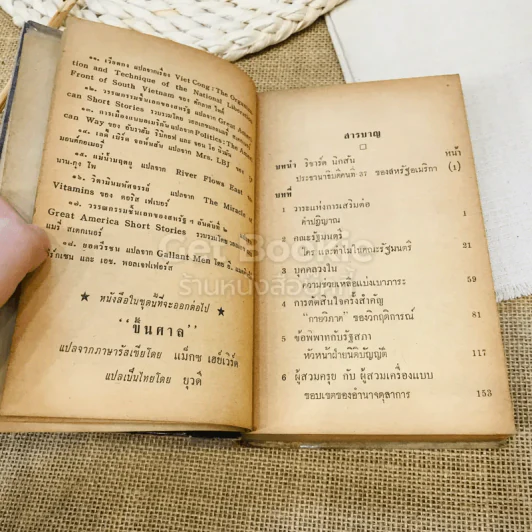 ๑๑. เวียดกง แปลจากเรื่อง Viet Cong : The Organiza-
tion and Technique of the National Liberation
Front of South Vietnam ของ ดักลาส ไพค์
๑๒. วรรณกรรมชั้นเอกของสหรัฐ แปลจาก Great Ameri-
can Short Stories รวบรวมโดย
๑๓. การเมืองแบบอเมริกัน แปลจาก Politics : The Ameri-
can Way ของ
๑๕. เลดี้ เบิร์ด จอห์นสัน แปลจาก Mrs. LBJ ของ
๑๖. แม่น้ำนฤดู แปลจาก River Flows East ของ
นาน-กุง โพ
๑๖. วิตามินมหัศจรรย์ แปลจาก The Miracle of
Vitamins ของ ดอริส เฟเบอร์
๑๗. วรรณกรรมชั้นเอกของสหรัฐ ฯ อันดับที่ ๒
Great America Short Stories รวบรวมโดย
แมรี่ สเตกเนอร์
๑๘. ยอดวีรชน แปลจาก Gallant Men โดย
เดิร์กเซน และ เอช. พอลเจฟเฟอร์ส
★ ★
หนังสือในชุดนี้ที่จะออกต่อไป
“ขึ้นศาล”
แปลจากภาษารัสเซียโดย แม็กซ เฮย์เวิร์ด
แปลเป็นไทยโดย ยุวดี
สารบาญ
หน้า
บทนำ ริชาร์ด นิกสัน
ประธานาธิบดีคนที่ 37 ของสหรัฐอเมริกา (1)
บทที่
1 วาระแห่งการเสริมต่อ
คำปฏิญาณ 1
2 คณะรัฐมนตรี
ใคร และทำไมในคณะรัฐมนตรี 21
3 บุคคลวงใน
ความช่วยเหลือแบ่งเบาภาระ 59
4 การตัดสินใจครั้งสำคัญ
“กายวิภาค” ของวิกฤติการณ์ 81
5 ข้อพิพาทกับรัฐสภา
หัวหน้าฝ่ายนิติบัญญัติ 117
6 ผู้สวมครุย กับ ผู้สวมเครื่องแบบ
ขอบเขตของอำนาจตุลาการ 153